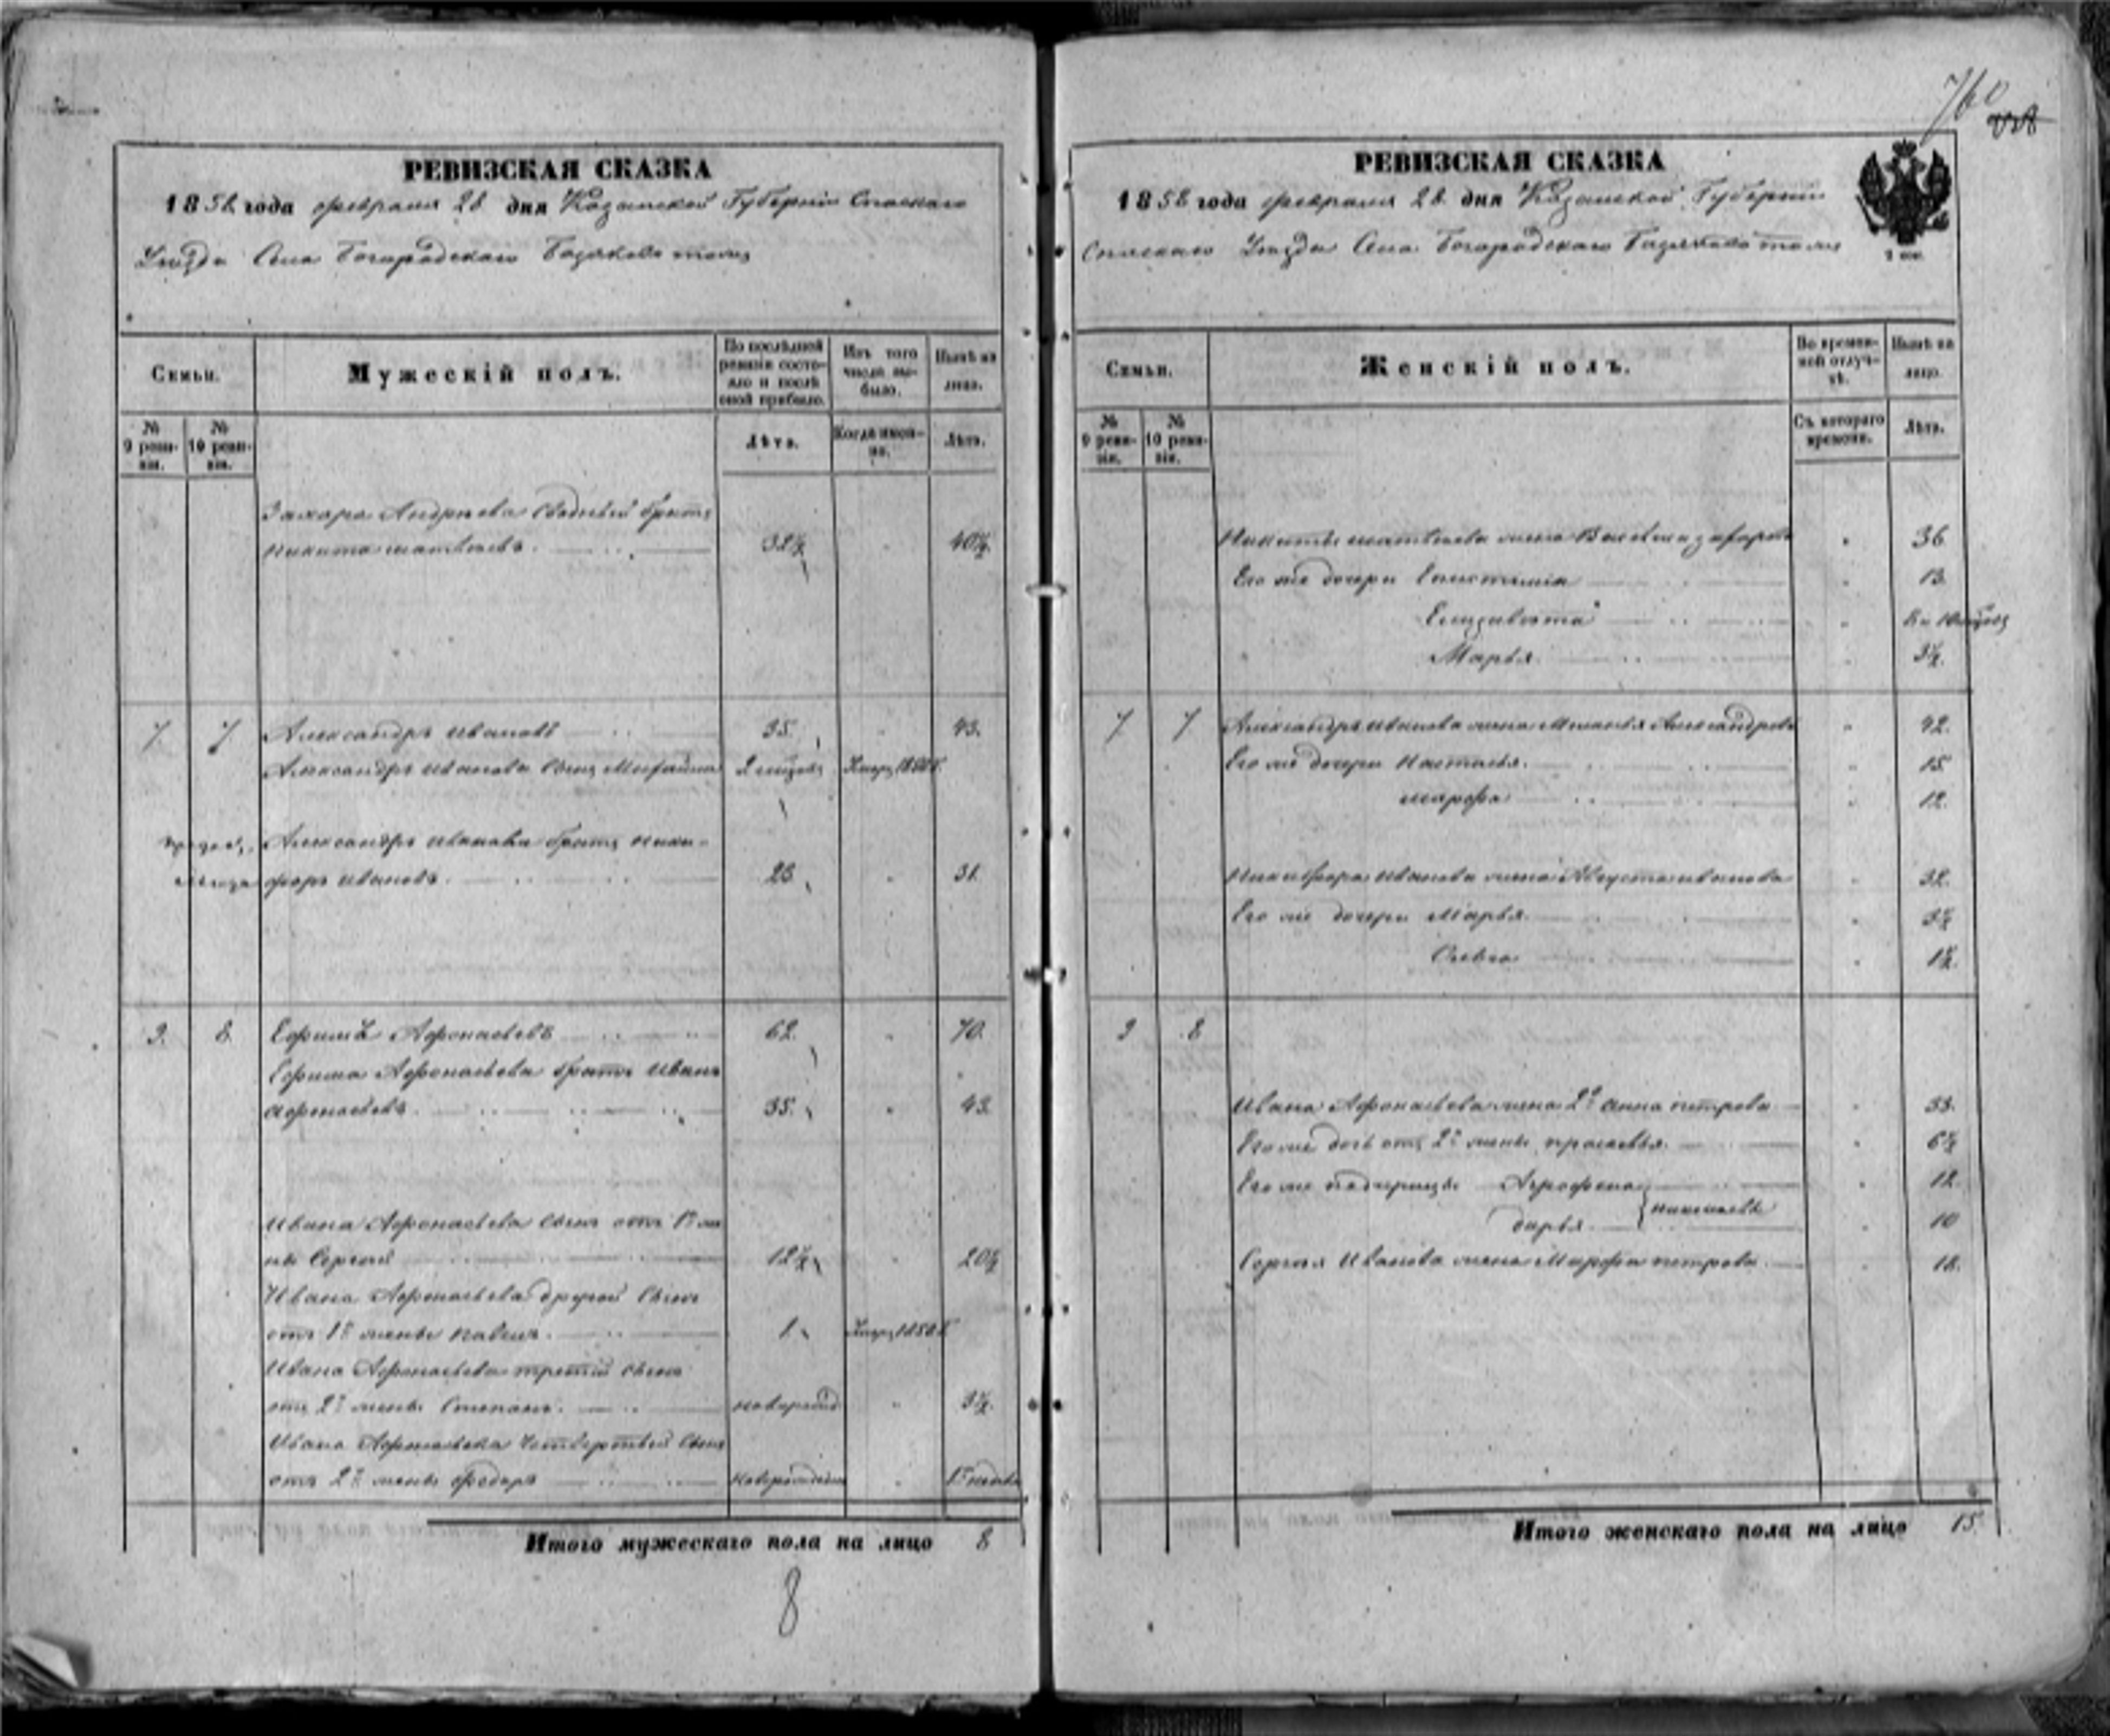 760
РЕВИЗСКАЯ СКАЗКА
1858 года февраля 28 дня Казанской Губерніи Спаскаго
Уѣзда Села Богородскаго
Семьи.
Мужескій полъ.
По послѣдней ревизіи состояло и послѣ оной прибыло.
Изъ того числа выбыло.
Нынѣ на лицо.
№ 9 ревизіи.
№ 10 ревизіи.
Лѣта.
Когда именно.
Лѣта.
Захара Андреева сводный братъ
Никита Матвѣевъ 32½ 40½
7. 7. Александръ Ивановъ 35. 43.
Александра Иванова сынъ
Александра Иванова братъ Ники-
форъ Ивановъ. 23 31.
9. 8. Ефимъ Афонасьевъ 62. 70.
Ефима Афонасьева братъ Иванъ
Афонасьевъ. 35. 43.
Ивана Афонасьева сынъ отъ 1й же-
ны Сергей 12½ 20½
Ивана Афонасьева другой сынъ
отъ 1й жены Павелъ. 1
Ивана Афонасьева третій сынъ
отъ 2й жены Степанъ. 3½
Ивана Афонасьева четвертый сынъ
отъ 2й жены Федоръ
Итого мужескаго пола на лицо 8
8
РЕВИЗСКАЯ СКАЗКА
1858 года февраля 28 дня Казанской Губерніи
Спаскаго Уѣзда Села Богородскаго
Семьи.
Женскій полъ.
Во временной отлучкѣ.
Нынѣ на лицо.
№ 9 ревизіи.
№ 10 ревизіи.
Съ котораго времени.
Лѣта.
Никиты Матвѣева жена 36
Его же дочери 13.
Елизавета
Марья. 3½.
7 7 Александра Иванова жена Александрова 42.
Его же дочери Настасья. 15.
Марфа 12.
Никифора Иванова жена Августа Иванова 32.
Его же дочери Марья. 3½
1½.
9 8
Ивана Афонасьева жена 2я Анна Петрова 33.
Его же дочь отъ 2й жены Прасковья. 6½
Его же падчерицы Агрофена 12.
Дарья 10
Сергея Иванова жена Марфа Петрова 18.
Итого женскаго пола на лицо 15.